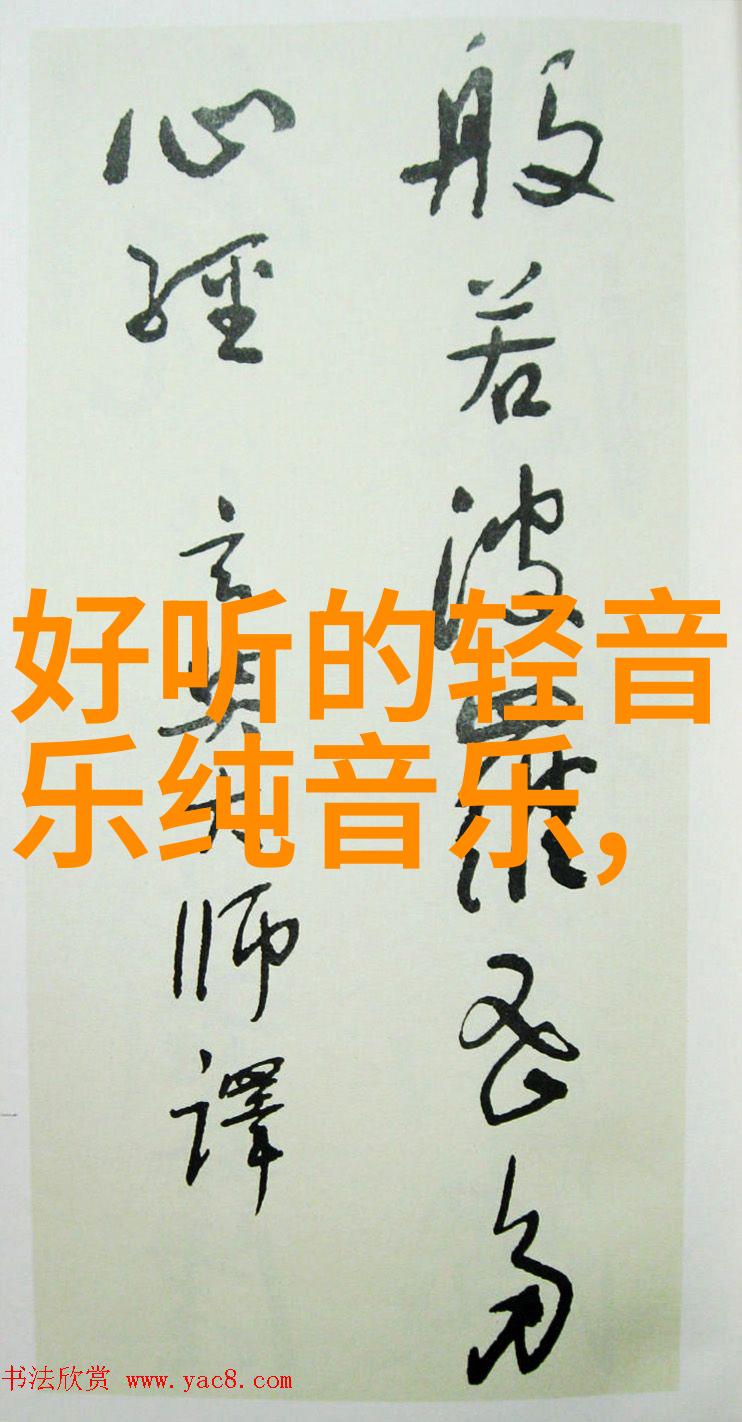 般若波羅密多
心經 玄奘大师譯
好听的轻音
乐纯音乐,
书法欣赏 www.yac8.com